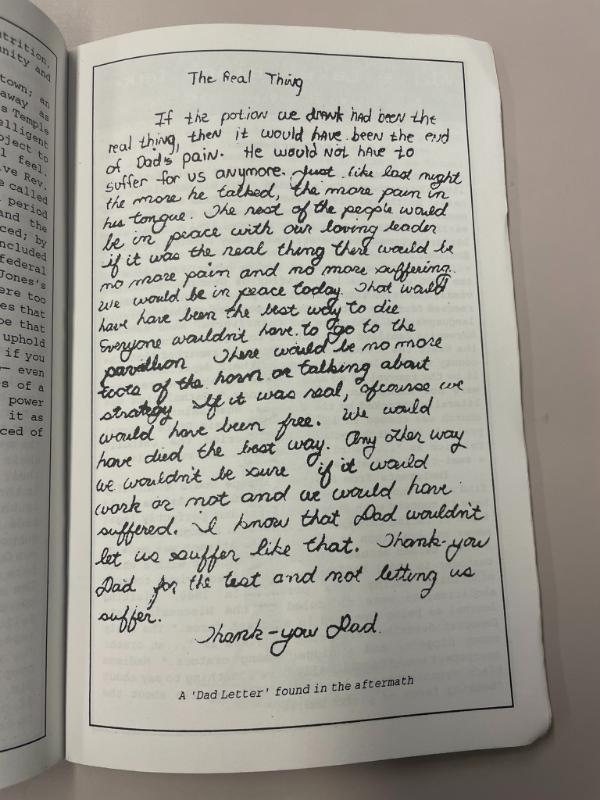 utrition,
unity and
town; an
away as
s Temple
elligent
bject to
l feel.
ve Rev.
e called
period
and the
ced; by
ncluded
federal
Jones's
ere too
es that
be that
uphold
if you
— even
s of a
power
it as
ced of
The Real Thing
If the potion we drank had been the
real thing, then it would have been the end
of Dad's pain. He would not have to
suffer for us anymore. Just like last night
the more he talked, the more pain in
his tongue. The rest of the people would
be in peace with our loving leader
if it was the real thing there would be
no more pain and no more suffering.
We would be in peace today. That would
have have been the best way to die
Everyone wouldn't have to go to the
pavillion There would be no more
toots of the horn or talking about
strategy If it was real, ofcourse we
would have been free. We would
have died the best way. Any other way
we wouldn't be sure if it would
work or not and we would have
suffered. I know that Dad wouldn't
let us sauffer like that. Thank-you
Dad for the test and not letting us
suffer.
Thank-you Dad.
A 'Dad Letter' found in the aftermath